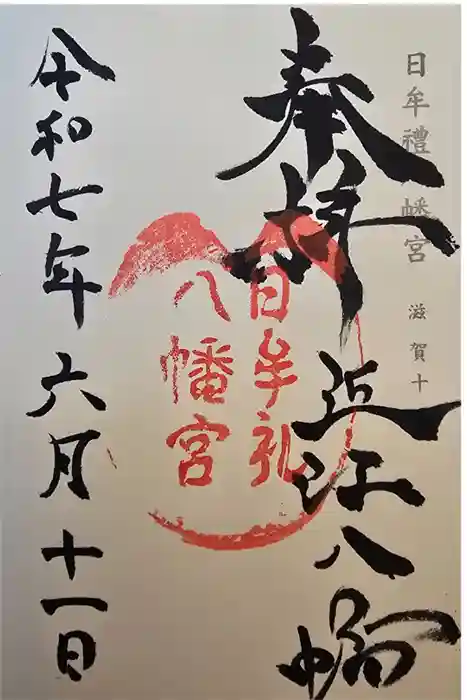 日牟禮八幡宮 滋賀十
奉拝 近江八幡
日牟礼
八幡宮
令和七年六月十一日